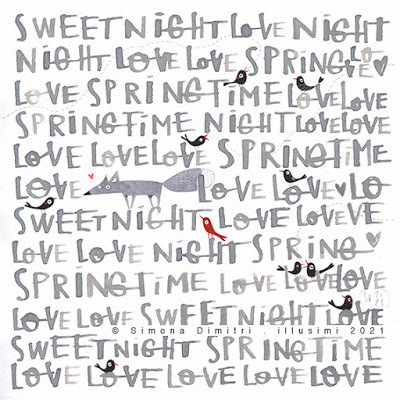 SWEET NIGHT LOVE NIGHT
NIGHT LOVE LOVE SPRING LOVE
LOVE SPRINGTIME LOVE LOVE
SPRINGTIME NIGHT LOVE LOVE
LOVE LOVE LOVE SPRINGTIME
LOVE LOVE LOVE LO
SWEET NIGHT LOVE LOVEVE
LOVE LOVE NIGHT SPRING
SPRINGTIME LOVE LOVE LOVE
LOVE LOVE SWEET NIGHT LOVE
© Simona Dimitri . illusimi 2021
SWEET NIGHT SPRINGTIME
LOVE LOVE LOVE LOVE LOVE